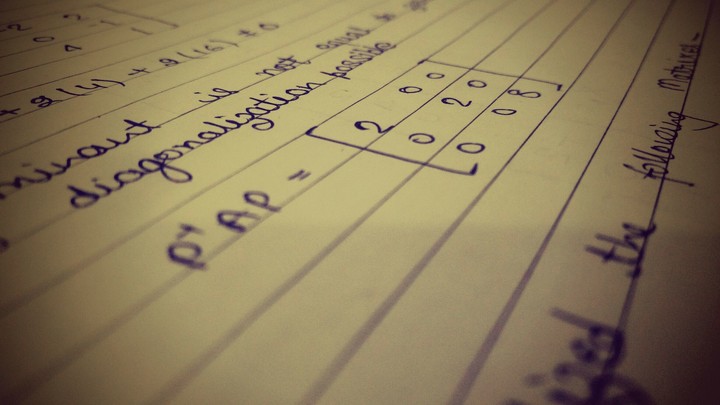 -2 2
0 -1
4 1
+ 2(4) + 2(16) ≠ 0
is not equal to
diagonalization possible
P⁻¹ AP = [2 0 0
0 2 0
0 0 8]
the following Matrices -